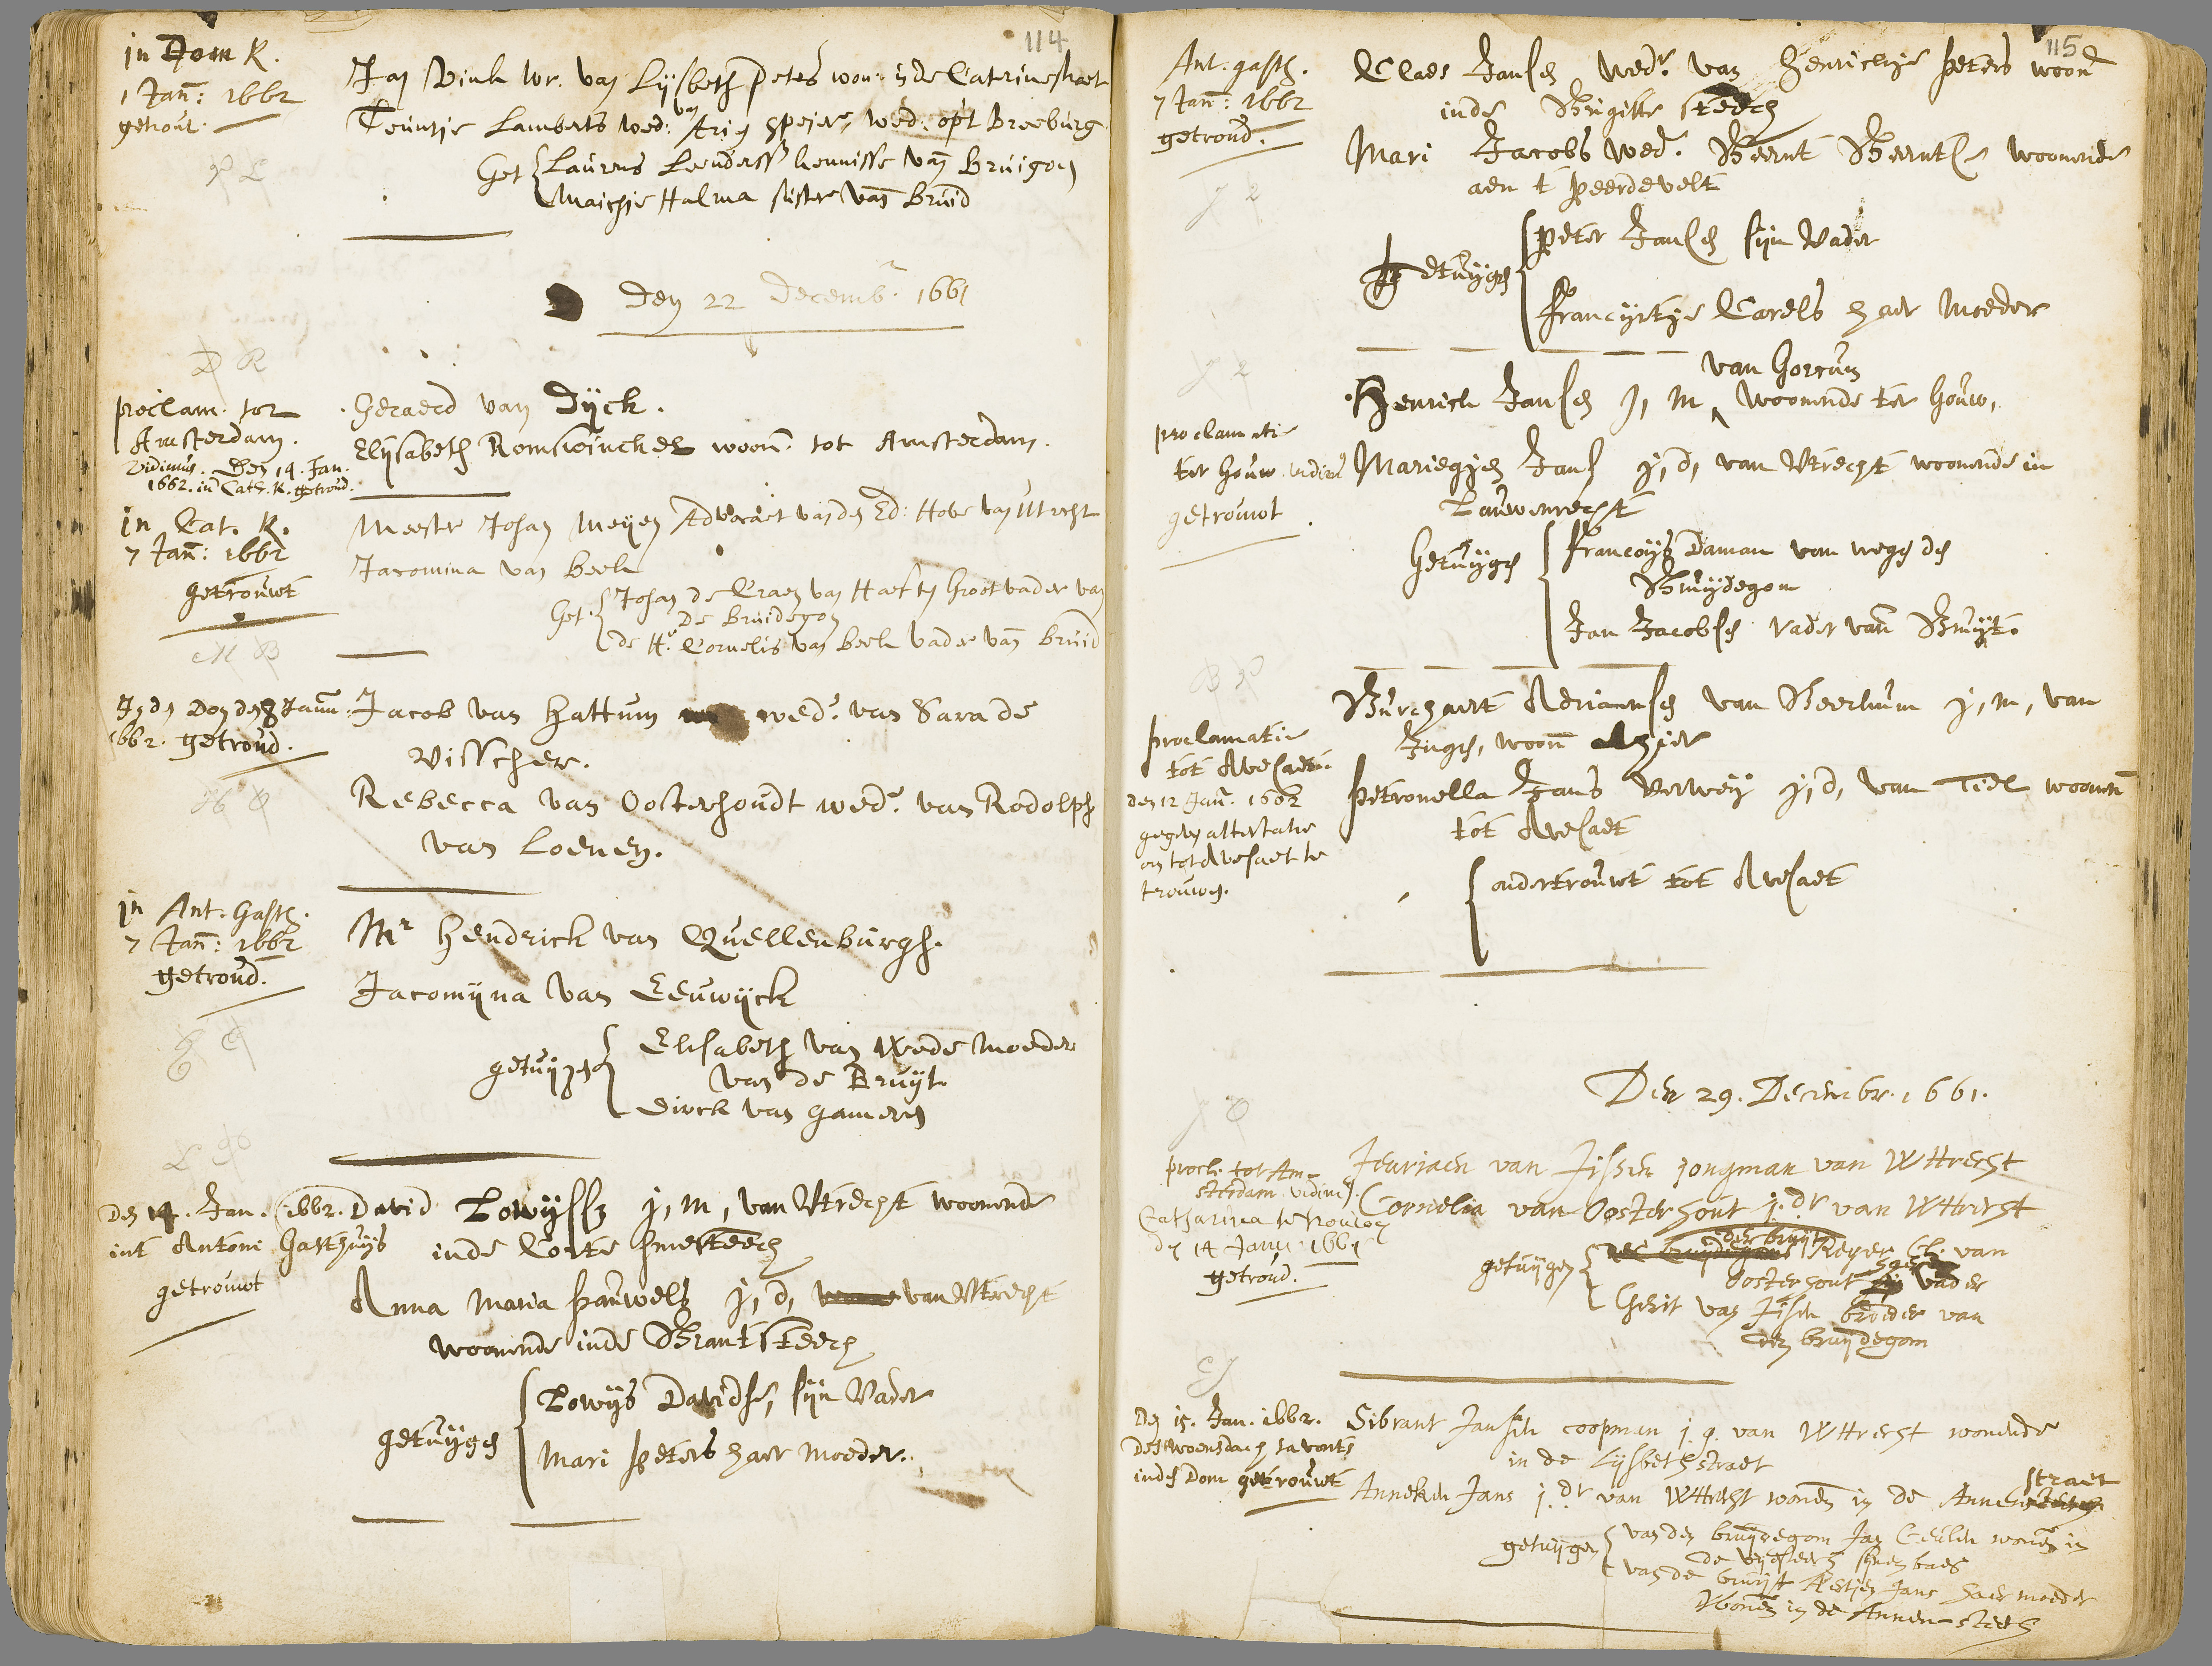 114
in Dom K.
1 Jan: 1662
getrout.
Jan Vink wr. van Lijsbeth peters won: in de Catrinestraet
Teuntje Lamberts wed: van Arien Speijer, wed: op't Breeburg
Get Laurens Leenderss kennisse van Bruigom
Maichje Halma suster van Bruid
Den 22 Decemb. 1661
D R
proclam. tot
Amsterdam.
vidimus. Den 14. Jan.
1662. in Cath. K. getroud.
Geraerd van Dijck.
Elijsabeth Romswinckel woon. tot Amsterdam.
in Cat. K.
7 Jan: 1662
getrouwt
M B
Meester Johan Meijen Advocaet van den Ed: Hove van Utrecht
Jacomina van Beek
Get. Johan de Craen van Haeften Grootvader van
De Bruidegom
de Hr. Cornelis van Beek vader van Bruid
In den Dom den 8 Janu:
1662. getroud.
H O
Jacob van Hattum wedr. van Sara de
Visscher.
Rebecca van Oosterhoudt wede. van Rodolph
van Loenen.
in Ant. Gasth.
7 Jan: 1662
getroud.
Mr Hendrick van Quellenburgh.
Jacomijna van Eeuwijck
getuijgen Elisabeth van Wede moeder
van de Bruijt
Dirck van Gameren
Den 14. Jan. 1662.
int Antoni Gasthuijs
getrouwt
David Lowijssz j, m, van Utrecht woonende
inde Corte smesteech
Anna Maria Pauwels j, d, van Utrecht
woonende inde Brantsteech
getuijgen Lowijs Davidse, sijn Vader
Mari Peters haer moeder.
115
Ant. gasth.
7 Jan: 1662
getroud.
Claes Jansen Wedr. van Henrickje Peters woond
inde Brigitte steech
Mari Jacobs wed. Beernt Beerntse woonende
aen t Peerdevelt
Getuijgen Peter Jansen sijn Vader
Francyntje Carels haer moeder
proclamatie
ter Gouw. vidimus
getrouwt
van Gorcum
Henrick Jansen j, m, woonende ter Gouw,
Mariegjen Jans j, d, van Utrecht woonende in
Lauwenrecht
Getuijgen Francoijs Daman van wegen den
Bruijdegom
Jan Jacobsen vader van Bruijt.
B P
proclamatie
tot Avesaet.
den 12 Jan. 1662
gegeven attestatie
om tot Avesaet te
trouwen.
Burchaert Adriaensen van Beerkum j, m, van
Ingen, woon alhier
Petronella Jans Verweij j, d, van Tiel woonen
tot Avesaet
ondertrouwt tot Avesaet
Den 29. Decembr. 1661.
J O
procl. tot Am-
sterdam vidimus.
Catharina te trouwen
den 14 Janu 1661
getroud.
Jeuriaen van Jissen jongman van Wttrecht
Cornelia van Oosterhout j. dr van Wttrecht
getuijgen der bruijt Reyer Cl. van
Oosterhout haer vader
Gerit van Jissen broeder van
den bruijdegom
Den 15. Jan. 1662.
Des woensdach savonts
inden Dom getrouwt
Sibrant Jansen coopman j. g. van Wttrecht wonende
in de Lijsbethstraet
Anneken Jans j. dr van Wttrecht wonen in de Annen straet
getuijgen van den bruijdegom Jan Ceulen wonen in
de sijnen baes
van de bruijt Aertjen Jans haer moeder
Wonen in de Annen-steech